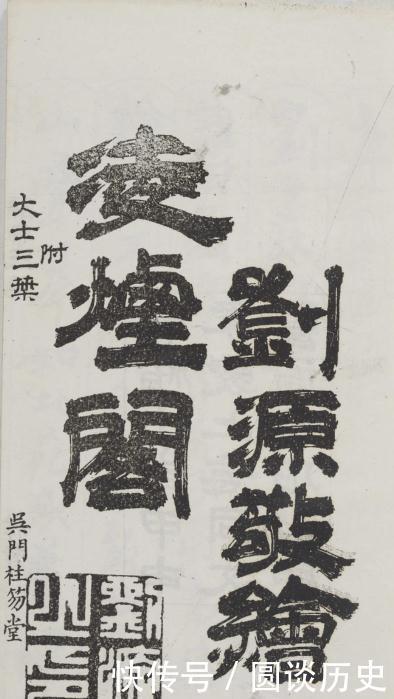 劉源敬繪
凌煙閣
附
大士三葉
吳門桂笏堂
快传号 / 圆谈历史